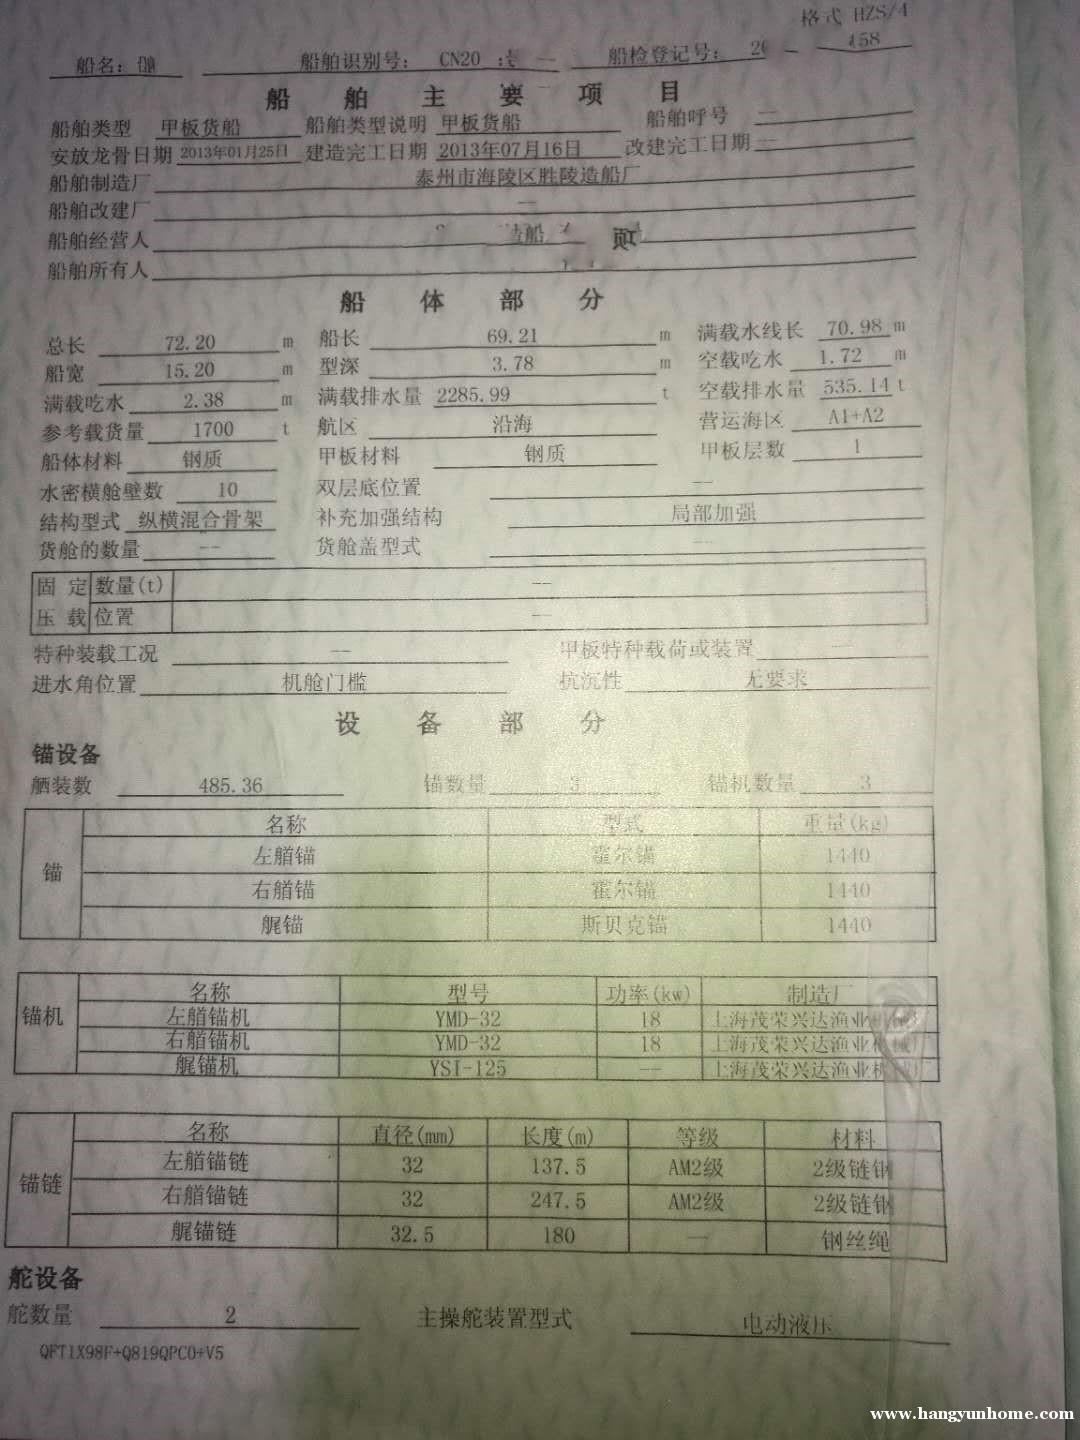 格式 HZS/4
船名： 船舶识别号： CN20 船检登记号： 20 158
船舶主要项目
船舶类型 甲板货船 船舶类型说明 甲板货船 船舶呼号 --
安放龙骨日期 2013年01月25日 建造完工日期 2013年07月16日 改建完工日期 --
船舶制造厂 泰州市海陵区胜陵造船厂
船舶改建厂 --
船舶经营人 造船
船舶所有人
船体部分
总长 72.20 m 船长 69.21 m 满载水线长 70.98 m
船宽 15.20 m 型深 3.78 m 空载吃水 1.72 m
满载吃水 2.38 m 满载排水量 2285.99 t 空载排水量 535.14 t
参考载货量 1700 t 航区 沿海 营运海区 A1+A2
船体材料 钢质 甲板材料 钢质 甲板层数 1
水密横舱壁数 10 双层底位置 --
结构型式 纵横混合骨架 补充加强结构 局部加强
货舱的数量 -- 货舱盖型式 --
固定 数量(t) --
压载 位置 --
特种装载工况 -- 甲板特种载荷或装置 --
进水角位置 机舱门槛 抗沉性 无要求
设备部分
锚设备
舾装数 485.36 锚数量 3 锚机数量 3
名称 型式 重量(kg)
锚
左艏锚 霍尔锚 1440
右艏锚 霍尔锚 1440
艉锚 斯贝克锚 1440
名称 型号 功率(kw) 制造厂
锚机
左艏锚机 YMD-32 18 上海茂荣兴达渔业机械厂
右艏锚机 YMD-32 18 上海茂荣兴达渔业机械厂
艉锚机 YSI-125 -- 上海茂荣兴达渔业机械厂
名称 直径(mm) 长度(m) 等级 材料
锚链
左艏锚链 32 137.5 AM2级 2级链钢
右艏锚链 32 247.5 AM2级 2级链钢
艉锚链 32.5 180 — 钢丝绳
舵设备
舵数量 2 主操舵装置型式 电动液压
QFT1X98F+Q819QPC0+V5
www.hangyunhome.com